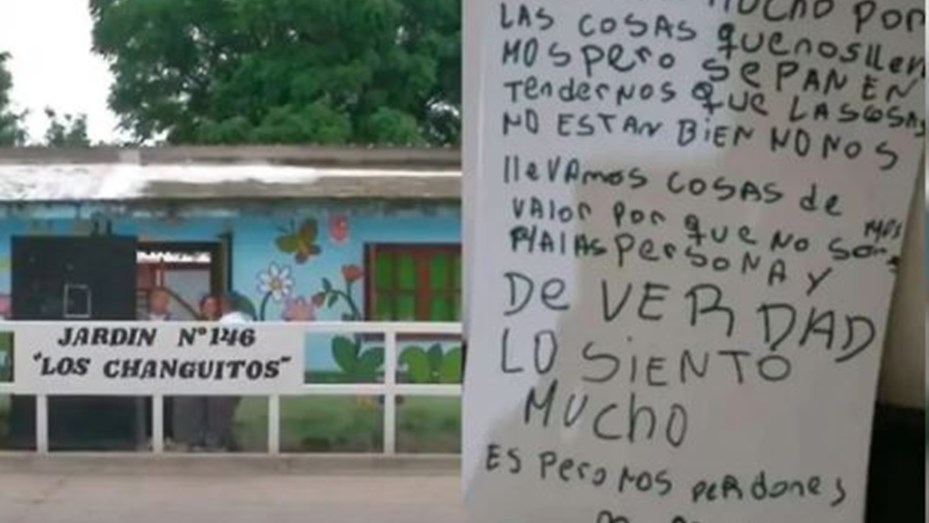 JARDIN N° 146
"LOS CHANGUITOS"
MUCHO POR
LAS COSAS quenosllev
MOS pero SEPAN EN
TENderNOS QUE LASCOSAS
NO ESTAN BIEN NO NOS
llEVAMOS COSAS de
VALOr Por que NO SOMOS
MALAS PERSONA Y
De VERDAD
LO SiENTO
MUCHO
ES Pero NOS PERdONES